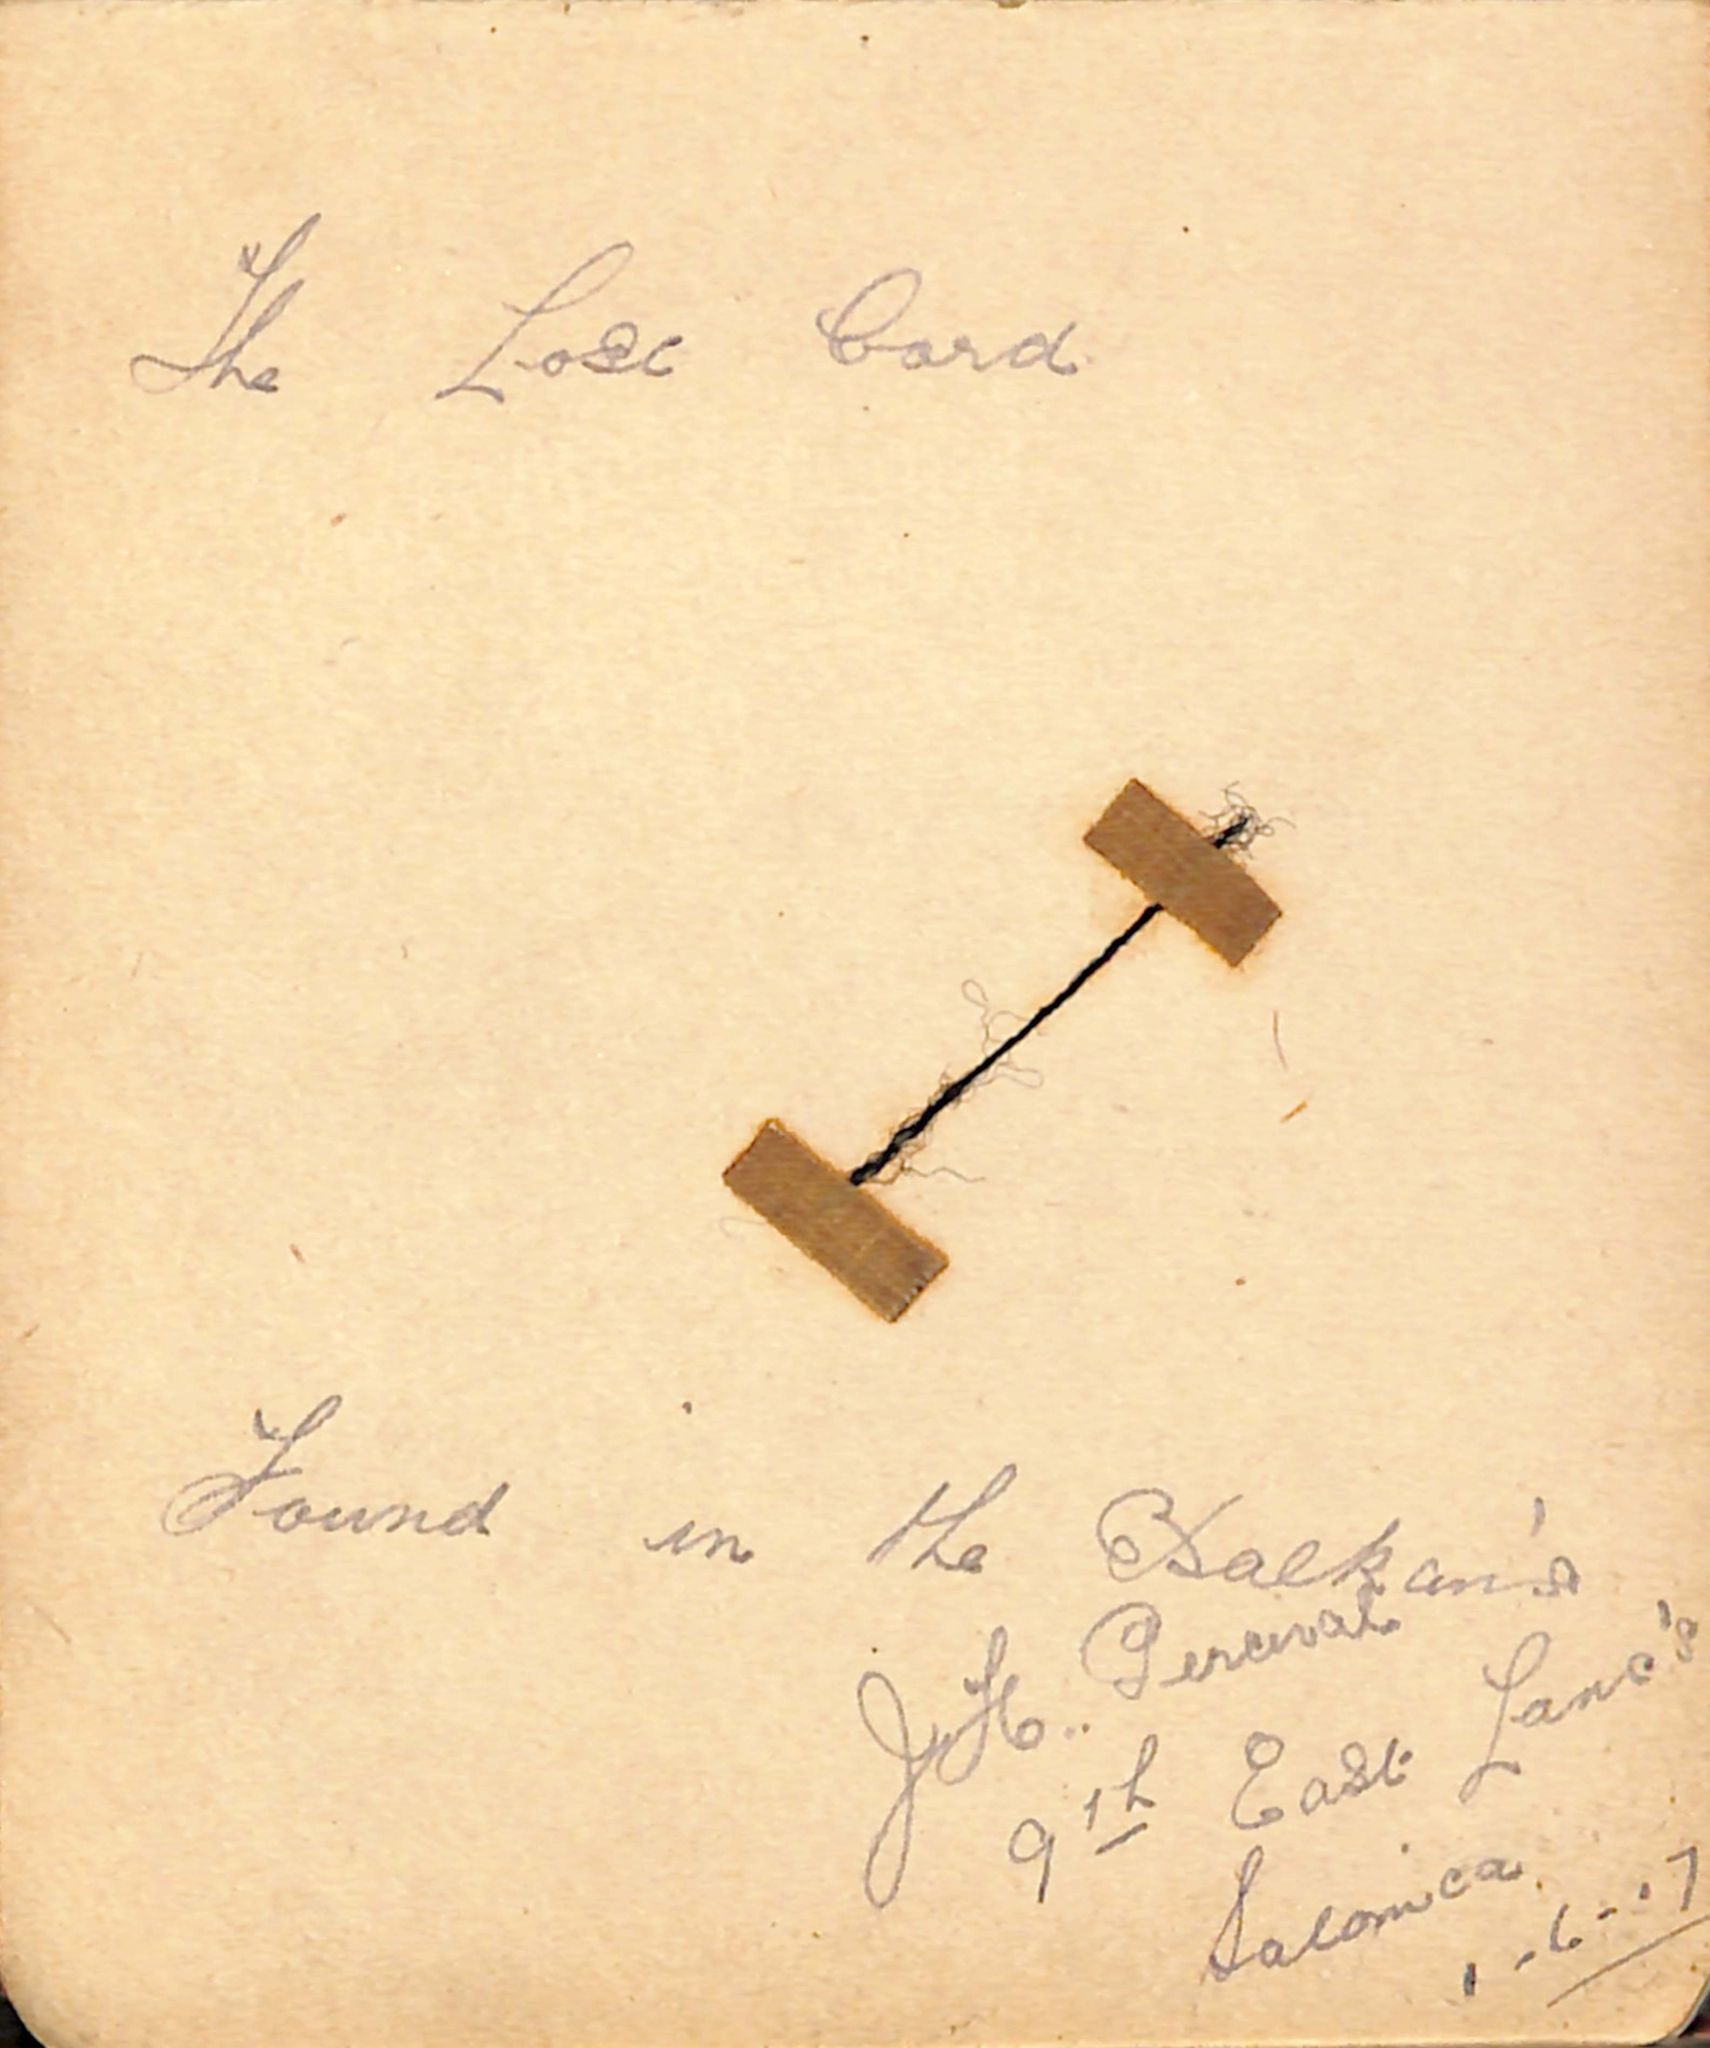 The Lost Cord
Found in the Balkan's
J.H. Percival
9th East Lanc's
Salonica
1-6-17